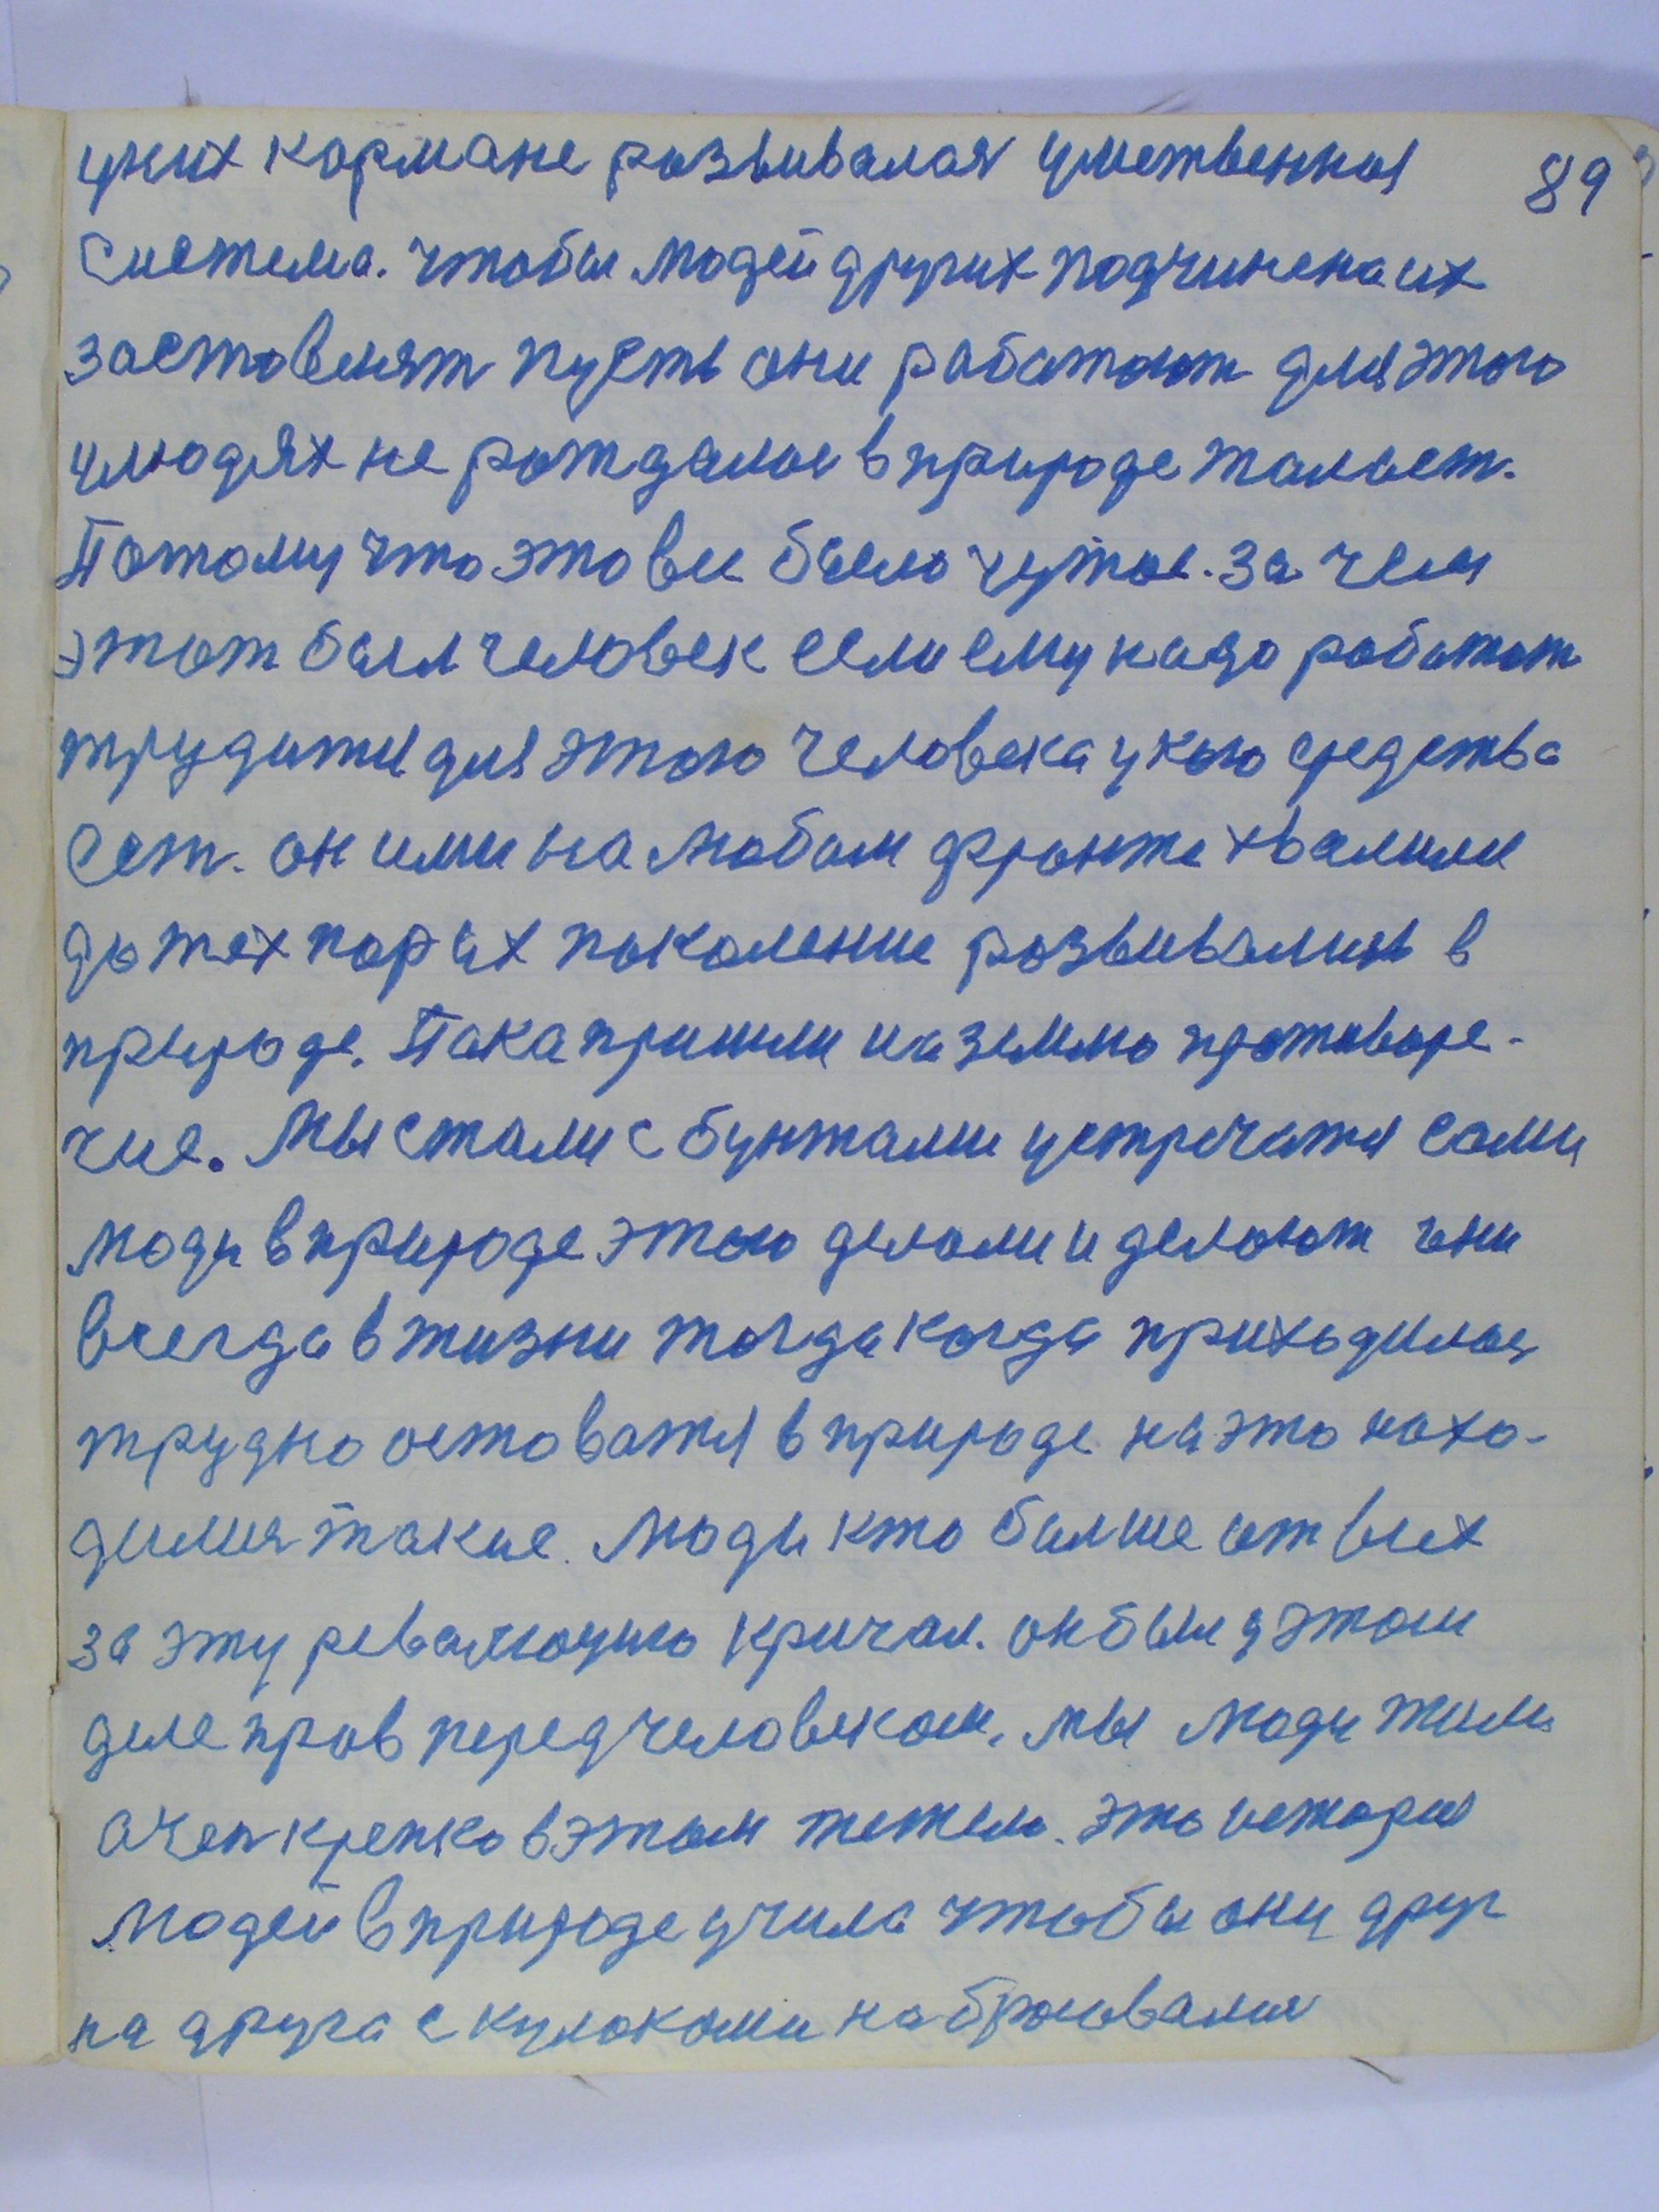 уних кормане розвивалася умственная 89
система. чтобы людей других подчинена их
застовлят пусть они работают для этого
улюдях не рождалос в природе жалост.
Потому что это все было чужое. за чем
этот был человек если ему надо работат
трудится для этого человека укого средства
ест. он ими на любом фронте хвалили
до тех пор их поколение розвивались в
природе. Пака пришли на землю противоре-
чие. Мы стали с бунтами устречатся сами
люди в природе этого делали и делают они
всегда в жизни тогда когда приходилося
трудно оставатся в природе на это нахо-
дился такие. люди кто болше от всех
за эту революцию кричал. он был у этом
деле прав перед человеком. мы люди жили
очен крепко в этом тяжело. это история
людей в природе учила чтобы они друг
на друга с кулоками набросвалися